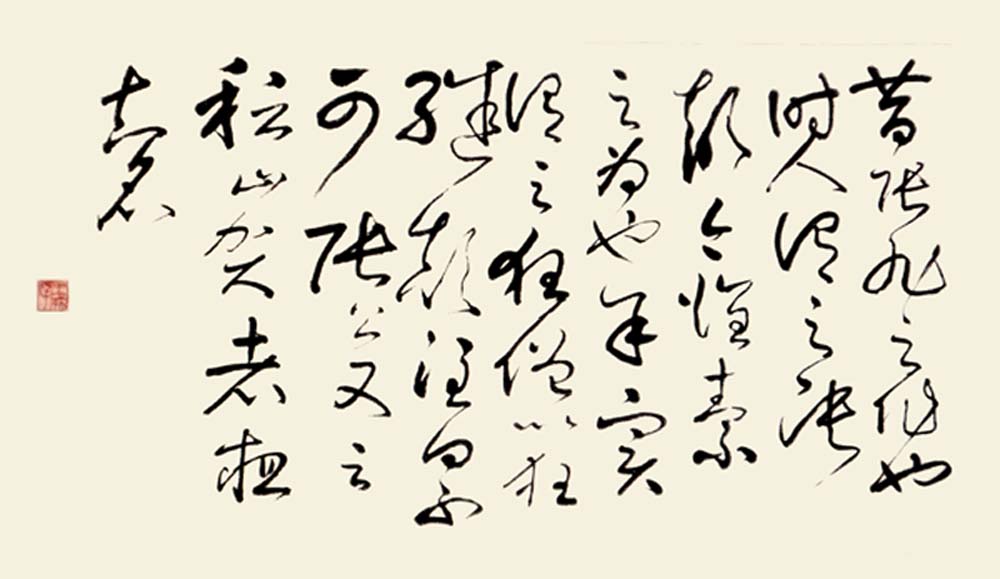 昔張旭之作也
時人謂之張
顛今懷素
之為也余實
謂之狂僧以狂
繼顛誰曰不
可張公又云
稽山賀老粗
知名